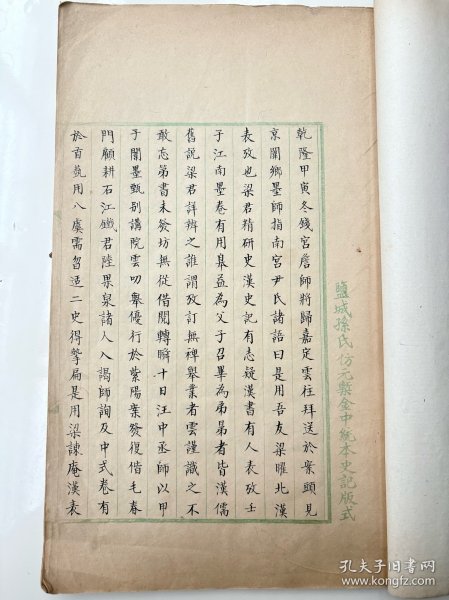 乾隆甲寅冬錢宮詹師將歸嘉定雲往拜送於案頭見
京闈鄉墨師指南宮尹氏諸語曰是用吾友梁曜北漢
表攷也梁君精研史漢史記有志疑漢書有人表攷壬
子江南墨卷有用皋益為父子召畢為弟昆者皆漢儒
舊說梁君詳辨之誰謂攷訂無裨舉業者雲謹識之不
敢忘第書未發坊無從借閱轉瞬十日汪中丞師以甲
子闈墨甄別講院雲叨舉優行於紫陽案發後偕毛春
門顧耕石江鐵君陸果泉諸人入謁師詢及中式卷有
於首藝用八虞需智适二史得擊扁是用梁諫庵漢表
鹽城孫氏仿元槧金中統本史記版式
孔夫子旧书网
www.kongfz.com